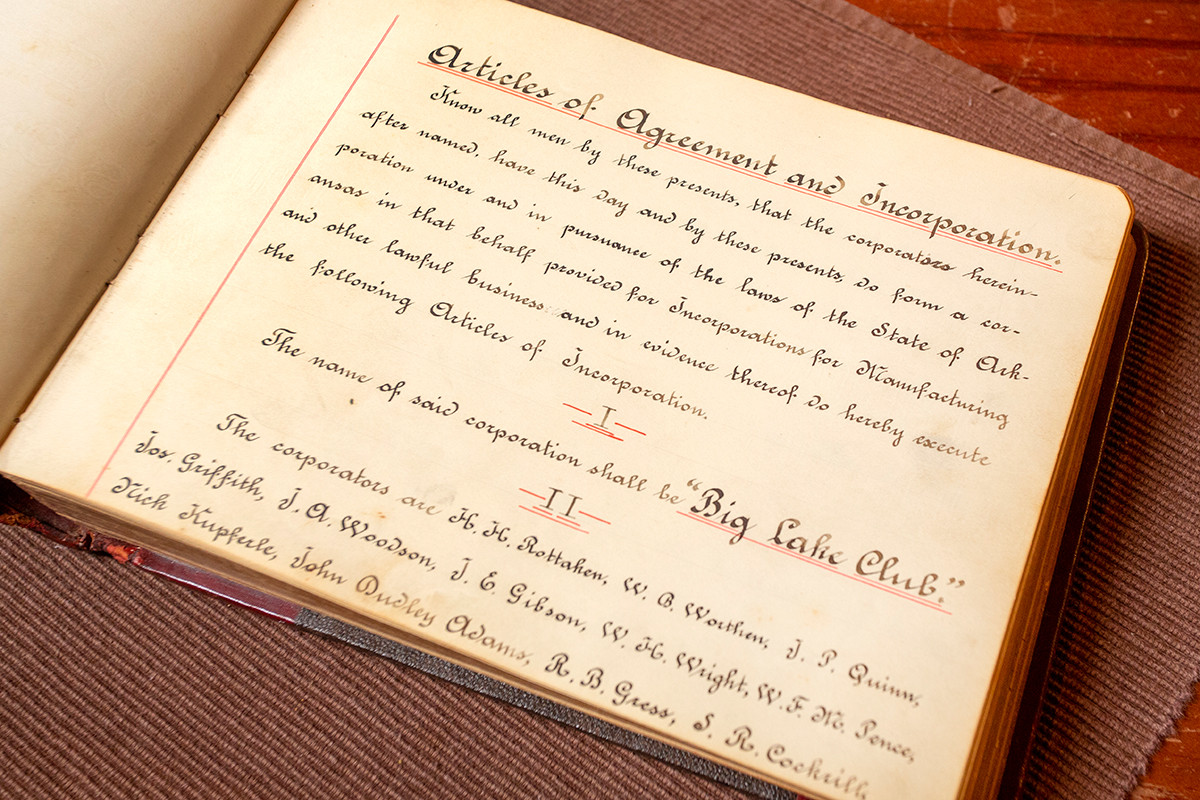 Articles of Agreement and Incorporation.
Know all men by these presents, that the corporators herein-
after named, have this day and by these presents, do form a cor-
poration under and in pursuance of the laws of the State of Ark-
ansas in that behalf provided for Incorporations for Manufacturing
and other lawful business and in evidence thereof do hereby execute
the following Articles of Incorporation.
I
The name of said corporation shall be "Big Lake Club."
II
The corporators are H. H. Rottaken, W. B. Worthen, J. P. Quinn,
Jos. Griffith, J. A. Woodson, J. E. Gibson, W. H. Wright, W. F. M. Pence,
Nick Kupferle, John Dudley Adams, R. B. Gress, S. R. Cockrill